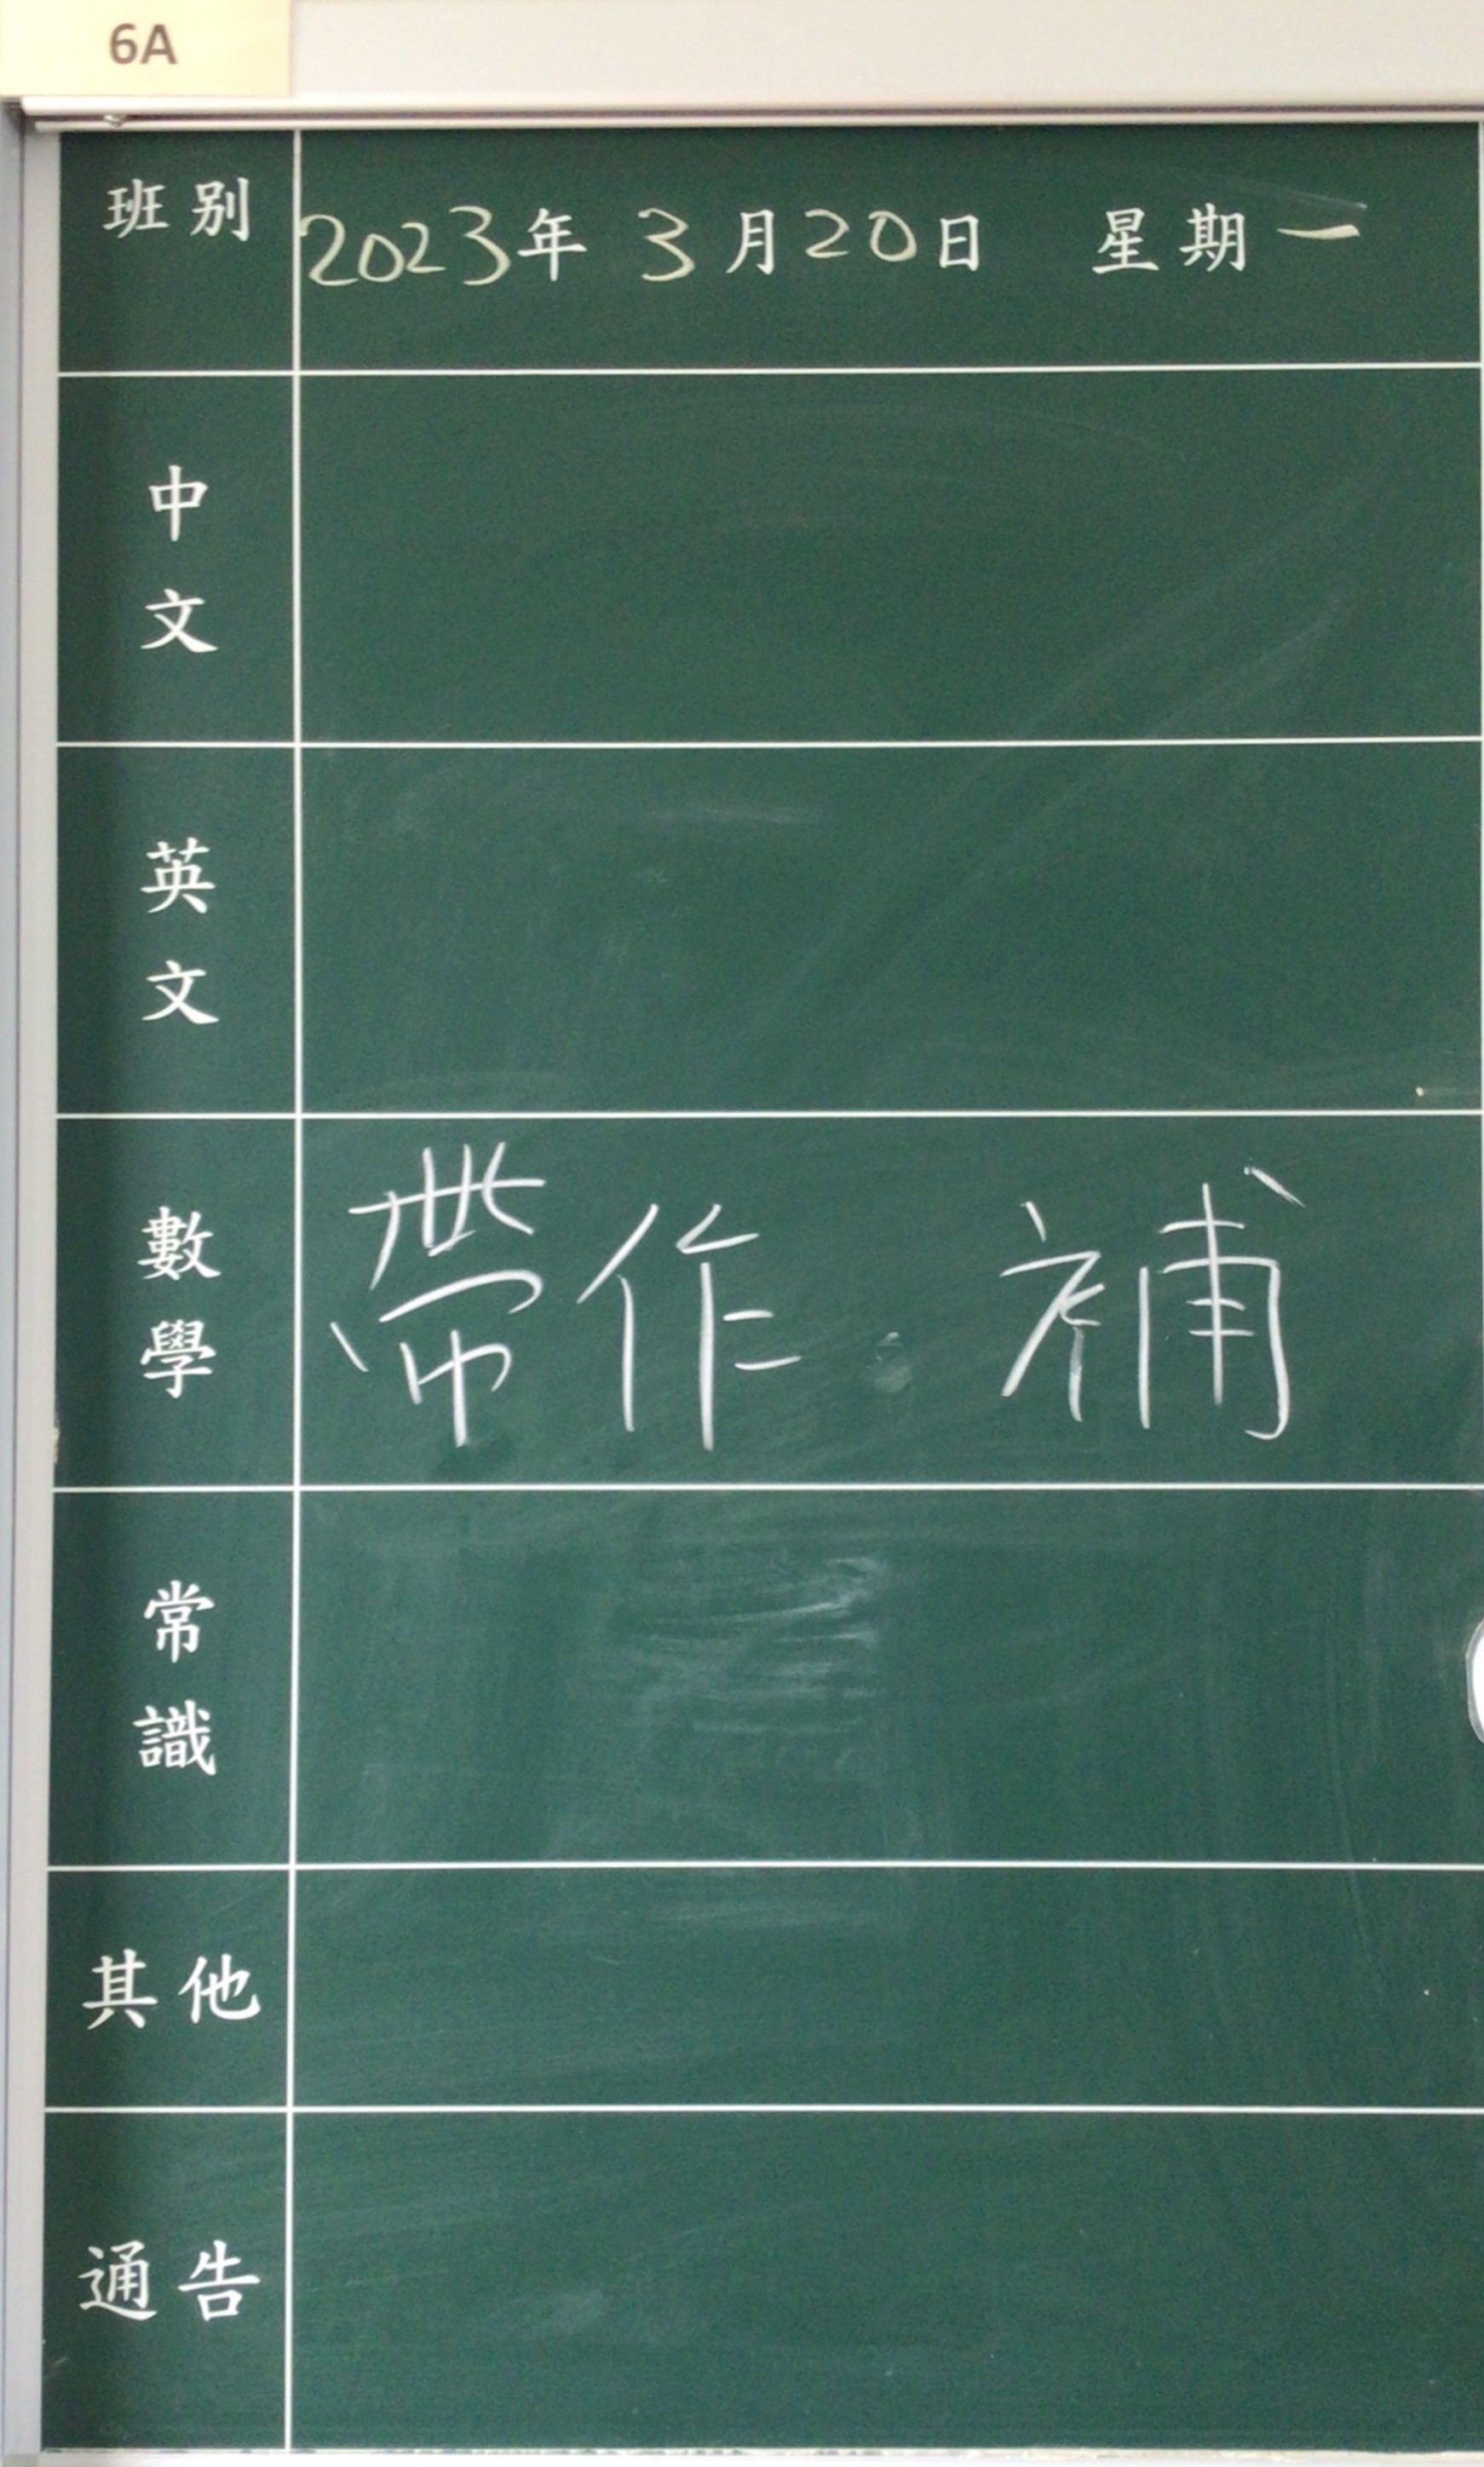 6A
班別
2023年 3月20日 星期一
中
文
英
文
數
學
帶作.補
常
識
其他
通告